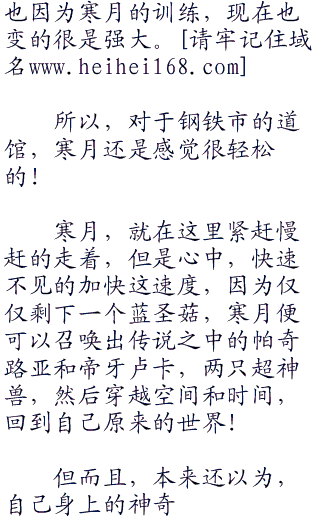 也因为寒月的训练，现在也
变的很是强大。[请牢记住域
名www.heihei168.com]
所以，对于钢铁市的道
馆，寒月还是感觉很轻松
的！
寒月，就在这里紧赶慢
赶的走着，但是心中，快速
不见的加快这速度，因为仅
仅剩下一个蓝圣菇，寒月便
可以召唤出传说之中的帕奇
路亚和帝牙卢卡，两只超神
兽，然后穿越空间和时间，
回到自己原来的世界！
但而且，本来还以为，
自己身上的神奇